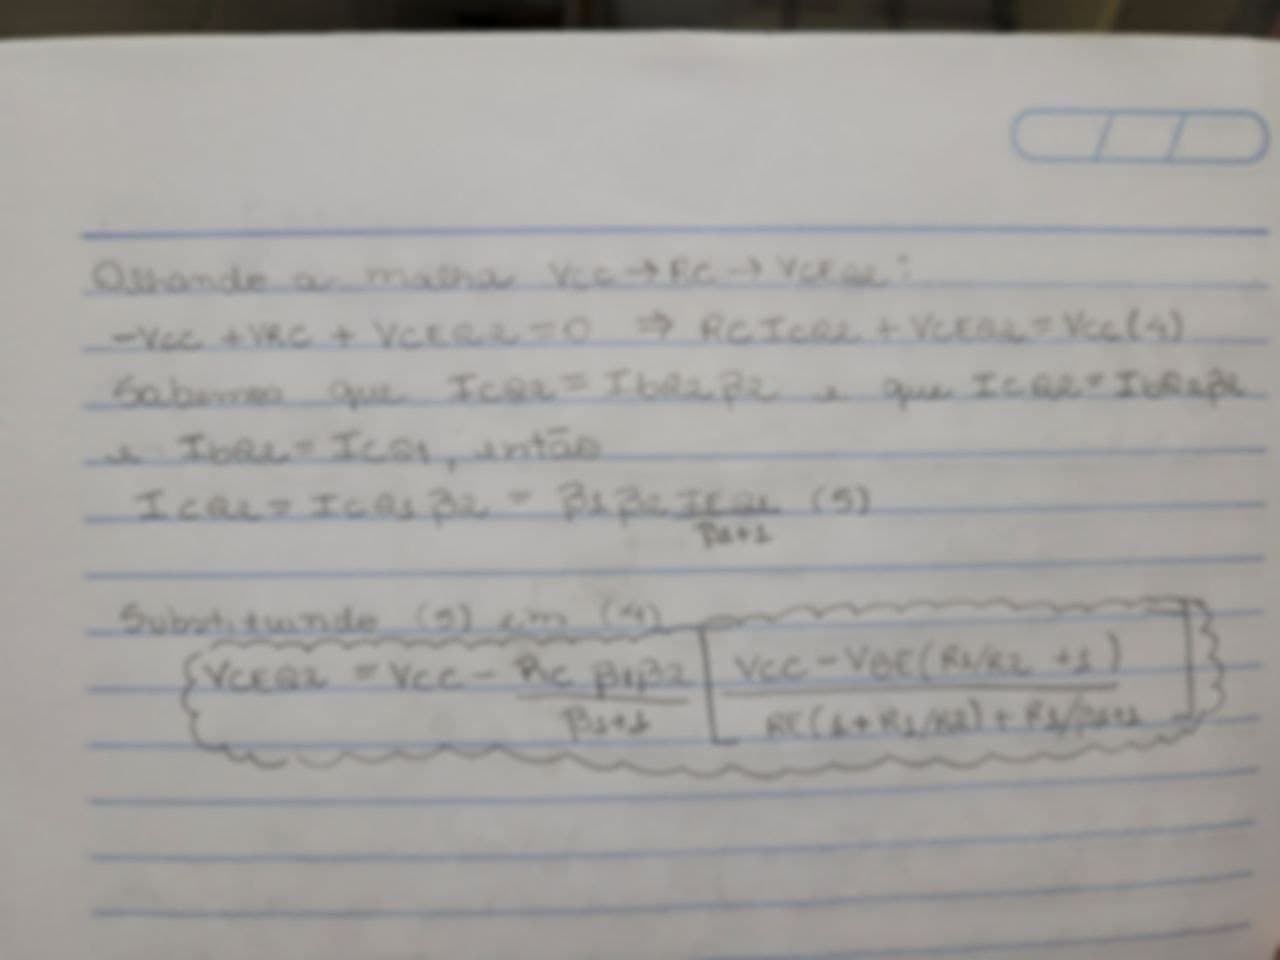 Olhando a malha VCC → RC → VCEQ2:
-VCC + VRC + VCEQ2 = 0 ⇒ RC ICQ2 + VCEQ2 = VCC (4)
Sabemos que ICQ2 = IbQ2 β2 e que ICQ2 = IbQ2 β2
e IbQ2 = ICQ1, então
ICQ2 = ICQ1 β2 = β1 β2 IEQ1 / β1+1 (5)
Substituindo (5) em (4)
VCEQ2 = VCC - RC β1β2 / β1+1 [VCC - VBE(R1/R2 + 1) / RE(1+R1/R2) + R1/β1+1]